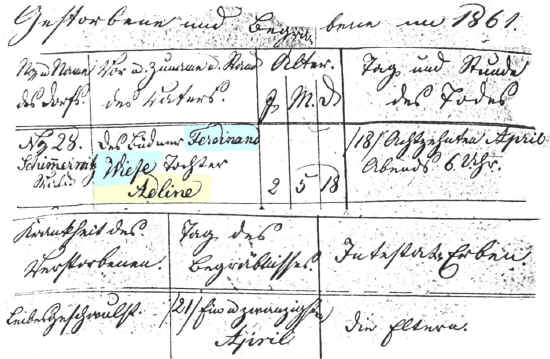 Gestorbene und Begrabene im 1861.
No u Name Vor u. Zuname u. Stand Alter. Tag und Stunde
des Dorfs. des Vaters. J. M. D des Todes
No 28. des Büdner Ferdinand /18/ Achtzehnten April
Wiese Tochter Abends 6 Uhr.
Adline 2 5 18
Krankheit des Tag des Intestat-Erben
Verstorbenen. Begräbnisses.
Leibesgeschwulst. /21/ Ein u zwanzigsten die Eltern.
April